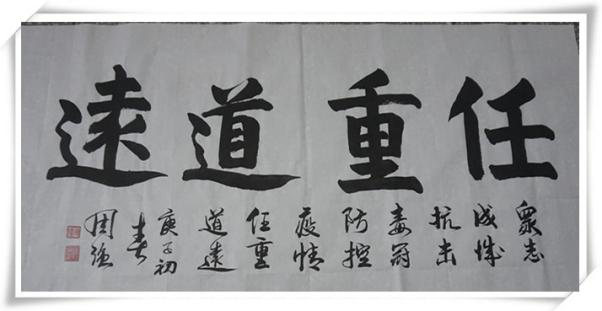 任重道遠
眾志
成城
抗击
毒冠
防控
疫情
任重
道遠
庚子初
春
周強